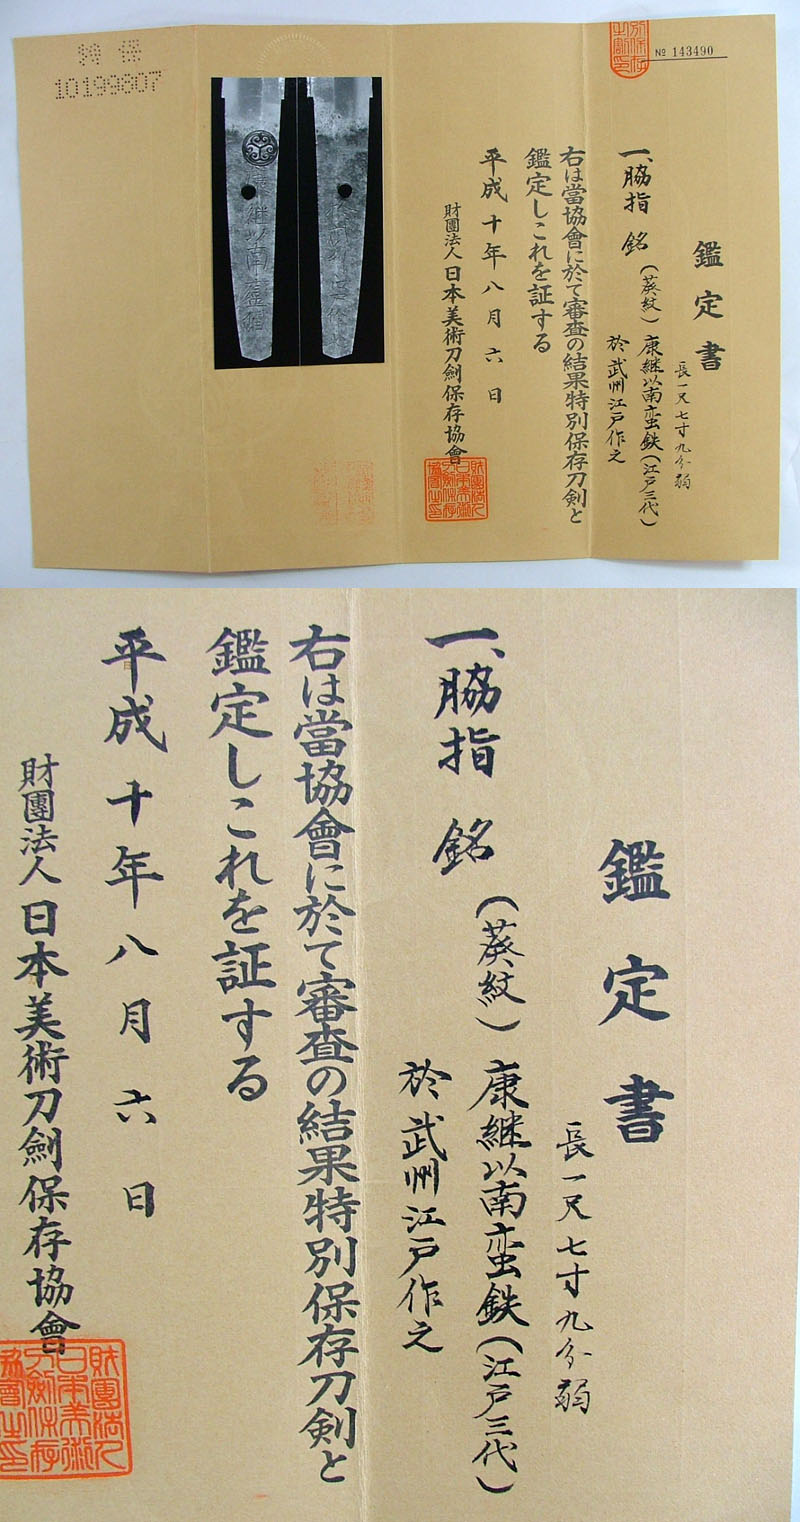 特保
10199807
№ 143490
鑑定書
長一尺七寸九分弱
一、脇指 銘 (葵紋) 康継以南蛮鉄(江戸三代)
於武州江戸作之
右は當協會に於て審査の結果特別保存刀剣と
鑑定しこれを証する
平成十年八月六日
財團法人日本美術刀劍保存協會
財團法人
日本美術
刀劍保存
協會之印
鑑定書
長一尺七寸九分弱
一、脇指 銘 (葵紋) 康継以南蛮鉄(江戸三代)
於武州江戸作之
右は當協會に於て審査の結果特別保存刀剣と
鑑定しこれを証する
平成十年八月六日
財團法人日本美術刀劍保存協會
財團法人
日本美術
刀劍保存
協會之印